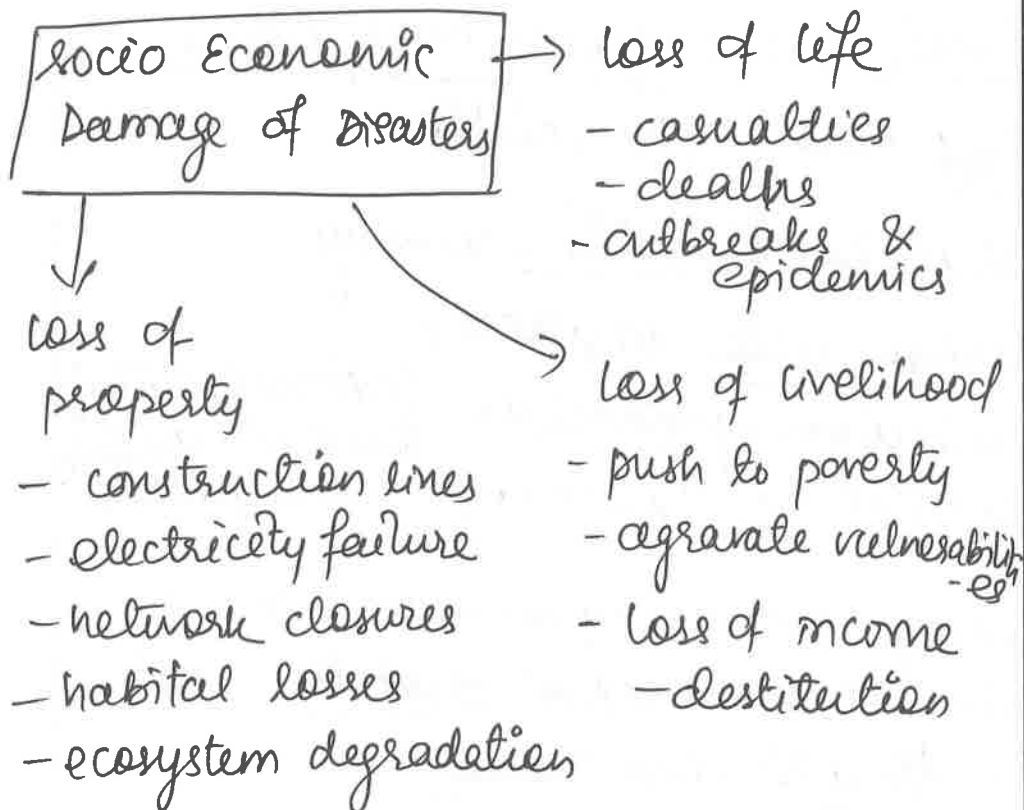 Socio Economic
Damage of Disasters
loss of life
- casualties
- deaths
- outbreaks &
epidemics
loss of
property
- construction lines
- electricity failure
- network closures
- habital losses
- ecosystem degradation
loss of livelihood
- push to poverty
- agravate vulnerabiliti
-es
- loss of income
- destitution